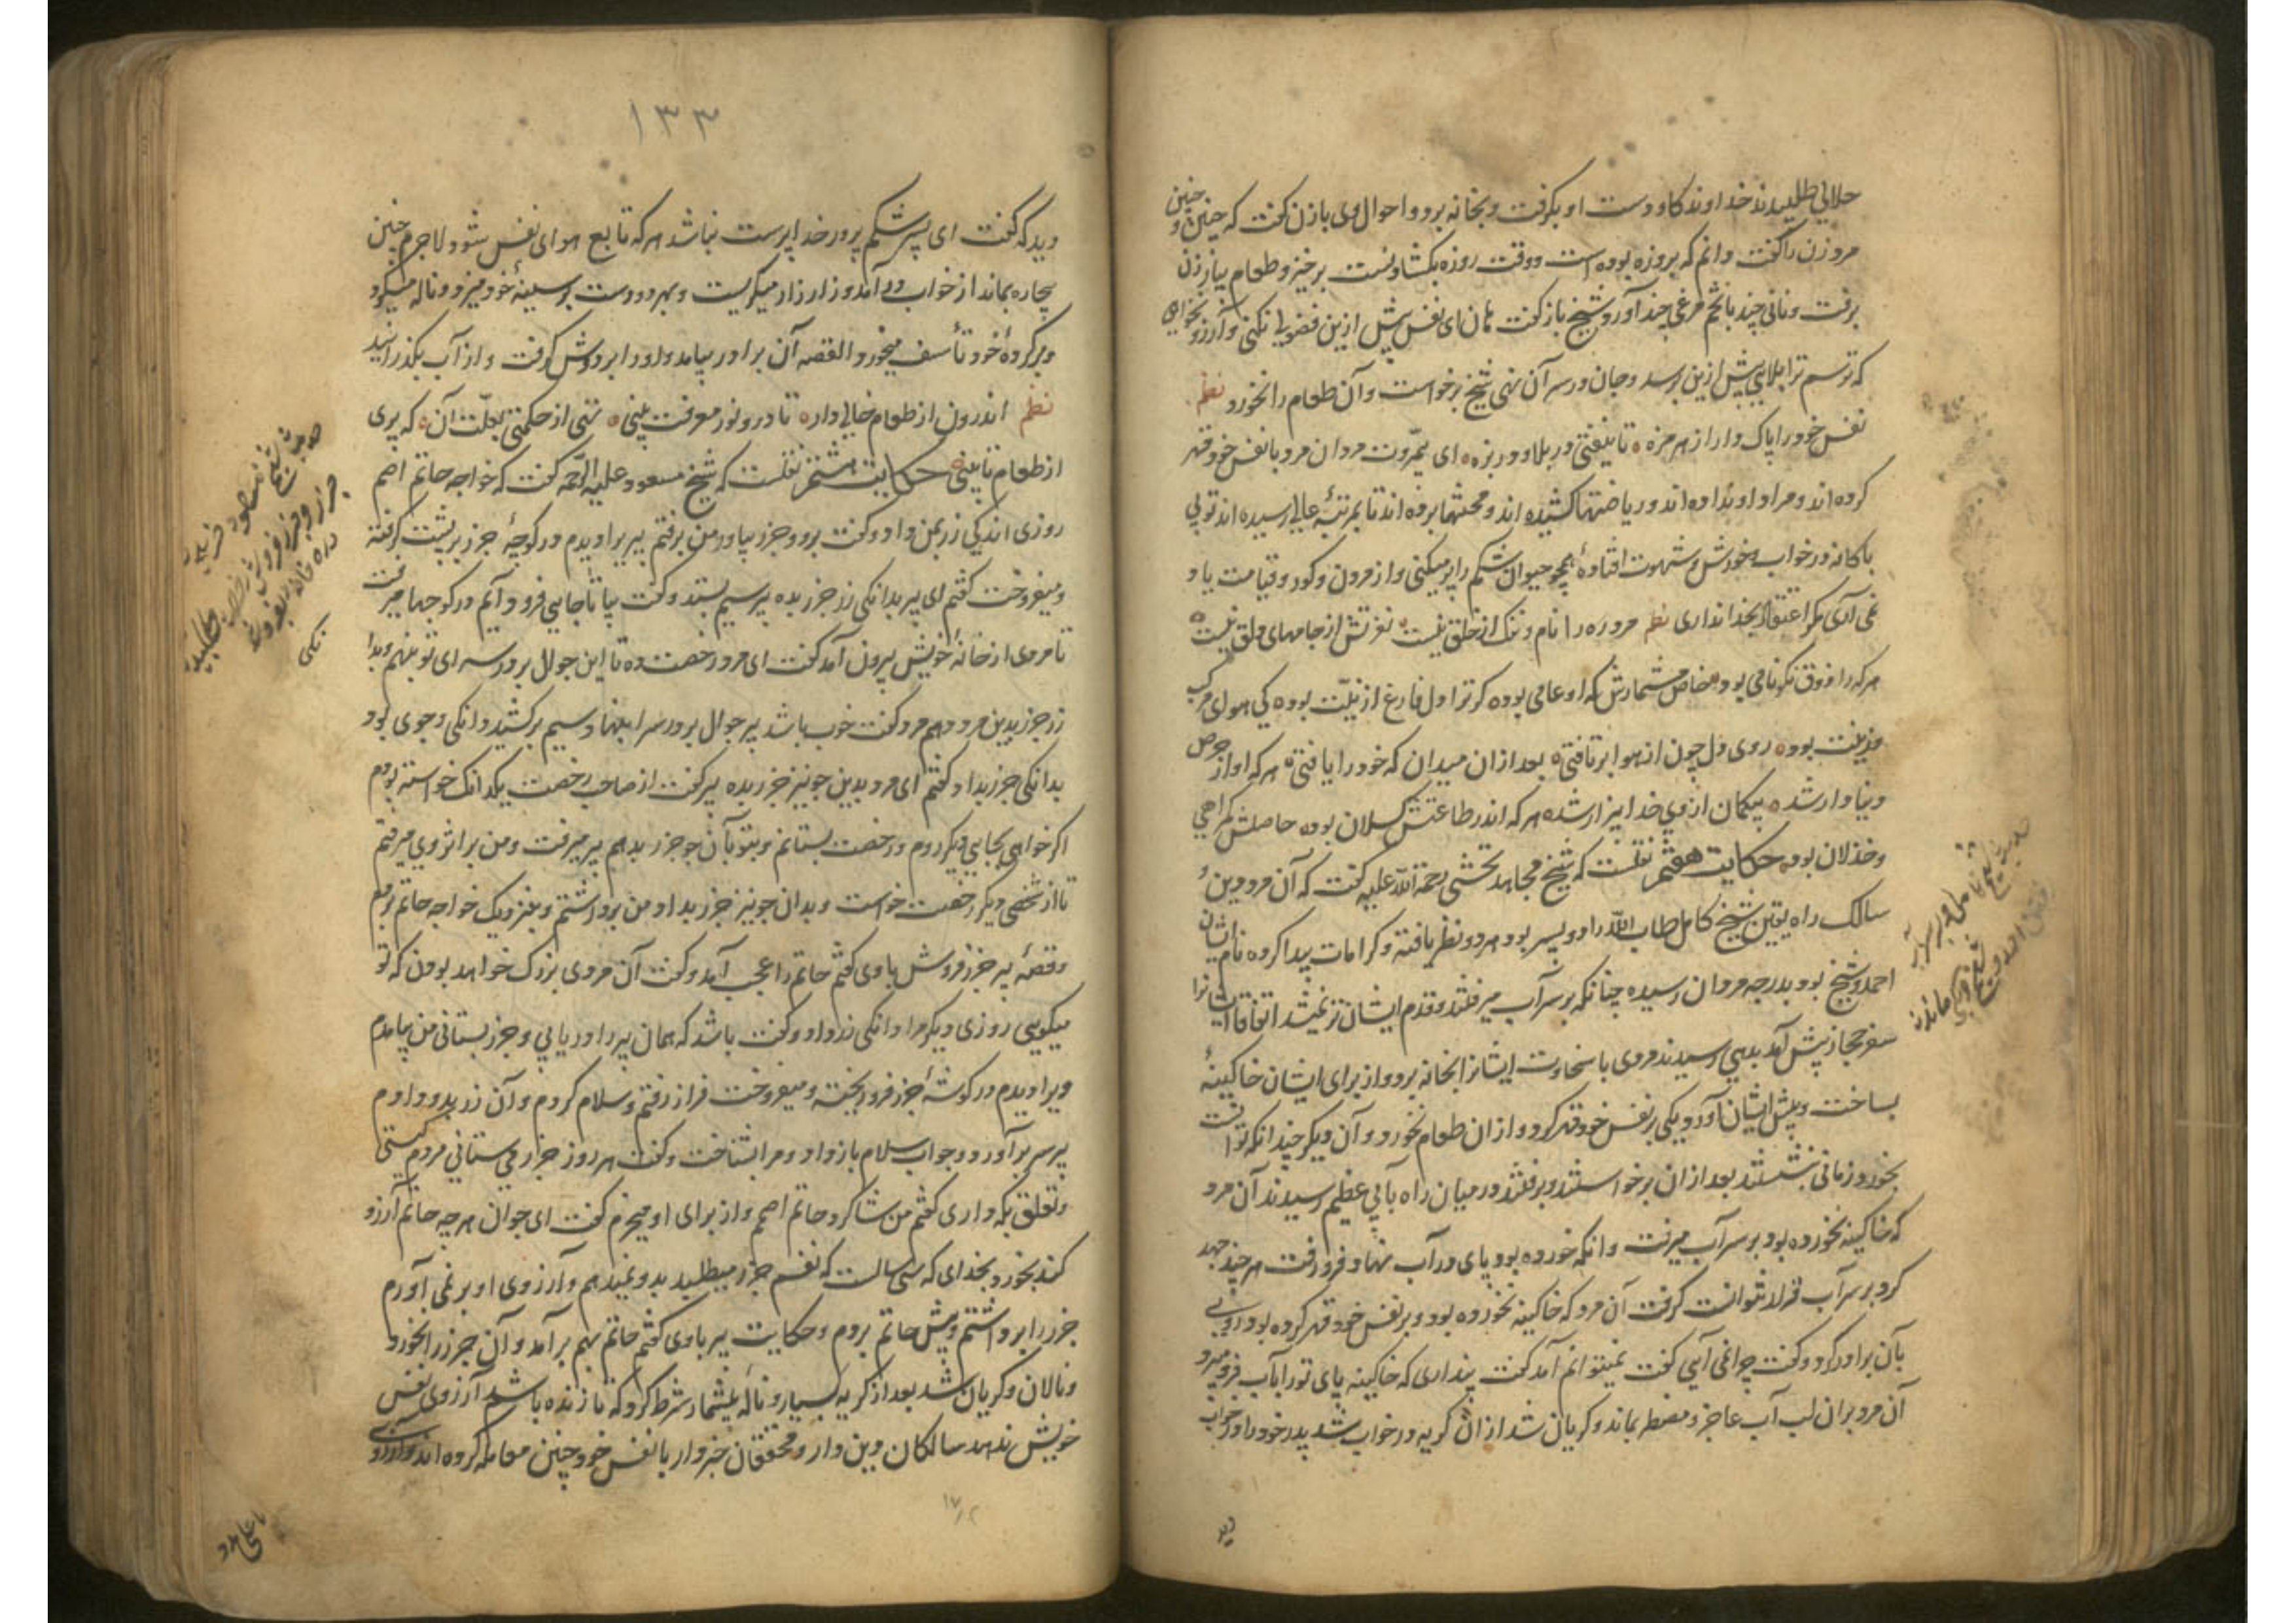 حلالی طلبیدند خداوند کاو دست او بگرفت و بخانه برد و احوال وی بازن گفت که چنین و چنین
مرد زن را گفت دانم که بروزه بوده است و وقت روزه بگشادنست برخیز و طعام بیار زن
برفت و نانی چند با تخم مرغی چند آورد شیخ باز گفت هان ای نفس پیش ازین فضولی نکنی و آرزو نخواهی
که ترسم ترا بلایی پیش ازین برسد و جان در سر آن نهی شیخ برخواست و آن طعام را نخورد نظم
نفس خود را پاک دار از هر مزه تا نیفتی در بلا و در بزه ای بمروت مردان مرد با نفس خود قهر
کرده اند و مراد او نداده اند و ریاضتها کشیده اند و محنتها برده اند تا بمرتبهٔ عالی رسیده اند تو پی
باکانه در خواب و خورش و شهوت افتادهٔ همچو حیوان شکم را پر میکنی و از مردن و کور و قیامت یاد
نمی آری مکر اعتقاد بخدا نداری نظم مرد ره را نام و ننک از خلق نیست نغزتش از جامهای دلق نیست
هر که را ذوق نکونامی بود مخاص مشمارش که او عامی بود کر ترا دل فارغ از زینت بود کی هوای مرکب
و زینت بود روی دل چون از هوا برتافتی بعد ازان میدان که خود را یافتی هر که او از حرص
دنیا دار شد بیکمان از وی خدا بیزار شد هر که اندر طاعتش کسلان بود حاصلش کمراهی
و خذلان بود حکایت هفتم نقلست که شیخ مجاهد تخشی رحمة الله علیه گفت که آن مرد دین و
سالک راه یقین شیخ کامل طاب الله را دو پسر بود هر دو نظر یافته و کرامات پیدا کرده نام ایشان
احمد و شیخ بود بدرجه مردان رسیده چنانکه بر سر آب میرفتند و قدم ایشان تر نمیشد اتفاقا ایشانرا
سفر حجاز پیش آمد بدهی رسیدند مردی با سخاوت ایشانرا بخانه برد و از برای ایشان خاکینهٔ
بساخت و پیش ایشان آورد و یکی بر نفس خود قهر کرد و ازان طعام نخورد و آن دیکر چندانکه توانست
بخورد زمانی بنشستند بعد ازان برخواستند و برفتند در میان راه بآبی عظیم رسیدند آن مرد
که خاکینه نخورده بود بر سر آب میرفت و انکه خورده بود پای در آب نهاد و فرو رفت هر چند جهد
کرد بر سر آب قرار نتوانست گرفت آن مرد که خاکینه نخورده بود و بر نفس خود قهر کرده بود روی
بآن برادر کرد و گفت چرا نمی آیی گفت نمیتوانم آمد گفت پنداری که خاکینه پای تو را بآب فرو میبرد
آن مرد بران لب آب عاجز و مضطر بماند و کریان شد از ان کریه در خواب شد پدر خود را در خواب
دید
دید که گفت ای پسر شکم پرور خدا پرست نباشد هر که تابع هوای نفس شود لاجرم چنین
بیچاره بماند از خواب در آمد و زار زار میگریست و بهر دو دست بر سینهٔ خود میزد و ناله میکرد
و بر کردهٔ خود تأسف میخورد القصه آن برادر بیامد و او را بر دوش کرفت و از آب بکذرانید
نظم اندرون از طعام خالی دار تا درو نور معرفت بینی تهی از حکمتی بعلت آن که پری
از طعام تا بینی حکایت هشتم نقلست که شیخ مسعود علیه الرحمه گفت که خواجه حاتم اصم
روزی اندکی زر بمن داد و گفت برو و جزر بیاور من برفتم پیر برا دیدم در کوچهٔ جزر بر پشت کرفته
و میفروخت کفتم ای پیر بدانکی زر جزر بده پیر سیم بستد و گفت بیا تا جایی فرود آیم در کوچها میرفت
تا مردی از خانهٔ خویش بیرون آمد گفت ای مرد رخصت ده تا این جوال بر در سرای تو بنهم و بدا
زر جزر بدین مرد دهم مرد گفت خوب باشد پیر جوال بر در سرا بنهاد و سیم برکشید دانکی و جوی بود
بدانکی جزر بداد کفتم ای مرد بدین جو نیز جزر بده پیر گفت از صاحب رخصت یکدانک خواسته بودم
اکر خواهی بجایی دیکر روم و رخصت بستانم و بتو بآن جو جزر بدهم پیر میرفت و من بر اثر وی میرفتم
تا از شخصی دیکر رخصت خواست و بدان جو نیز جزر بداد من برداشتم و بنزدیک خواجه حاتم بردم
و قصهٔ پیر جزر فروش باوی کفتم حاتم را عجب آمد و گفت آن مردی بزرک خواهد بودن که تو
میکویی روزی دیکر مرا دانکی زر داد و گفت باشد که همان پیر را دریابی و جزر بستانی من بیامدم
ویرا دیدم در کوشهٔ جزر فرو ریخته و میفروخت فراز رفتم و سلام کردم و آن زر بدو دادم
پیر سر بر آورد و جواب سلام باز داد و مرا بشناخت و گفت هر روز جزر می ستانی مردم کیستی
و تعلق بکه داری کفتم من شاکرد حاتم اصم و از برای او میخرم گفت ای جوان هر چه حاتم آرزو
کند بخورد بخدای که سی سالست که نفسم جزر میطلبد بدو نمیدهم و آرزوی او بر نمی آورم
جزر را برداشتم و پیش حاتم بردم و حکایت پیر باوی کفتم حاتم بهم برآمد و آن جزر را نخورد
و نالان و کریان شد بعد از کریه بسیار و نالهٔ بیشمار شرط کرد که تا زنده باشم آرزوی نفس
خویش ندهد سالکان دین دار و محققان خبردار با نفس خود چنین معامله کرده اند و آرزوی
۱۳۳